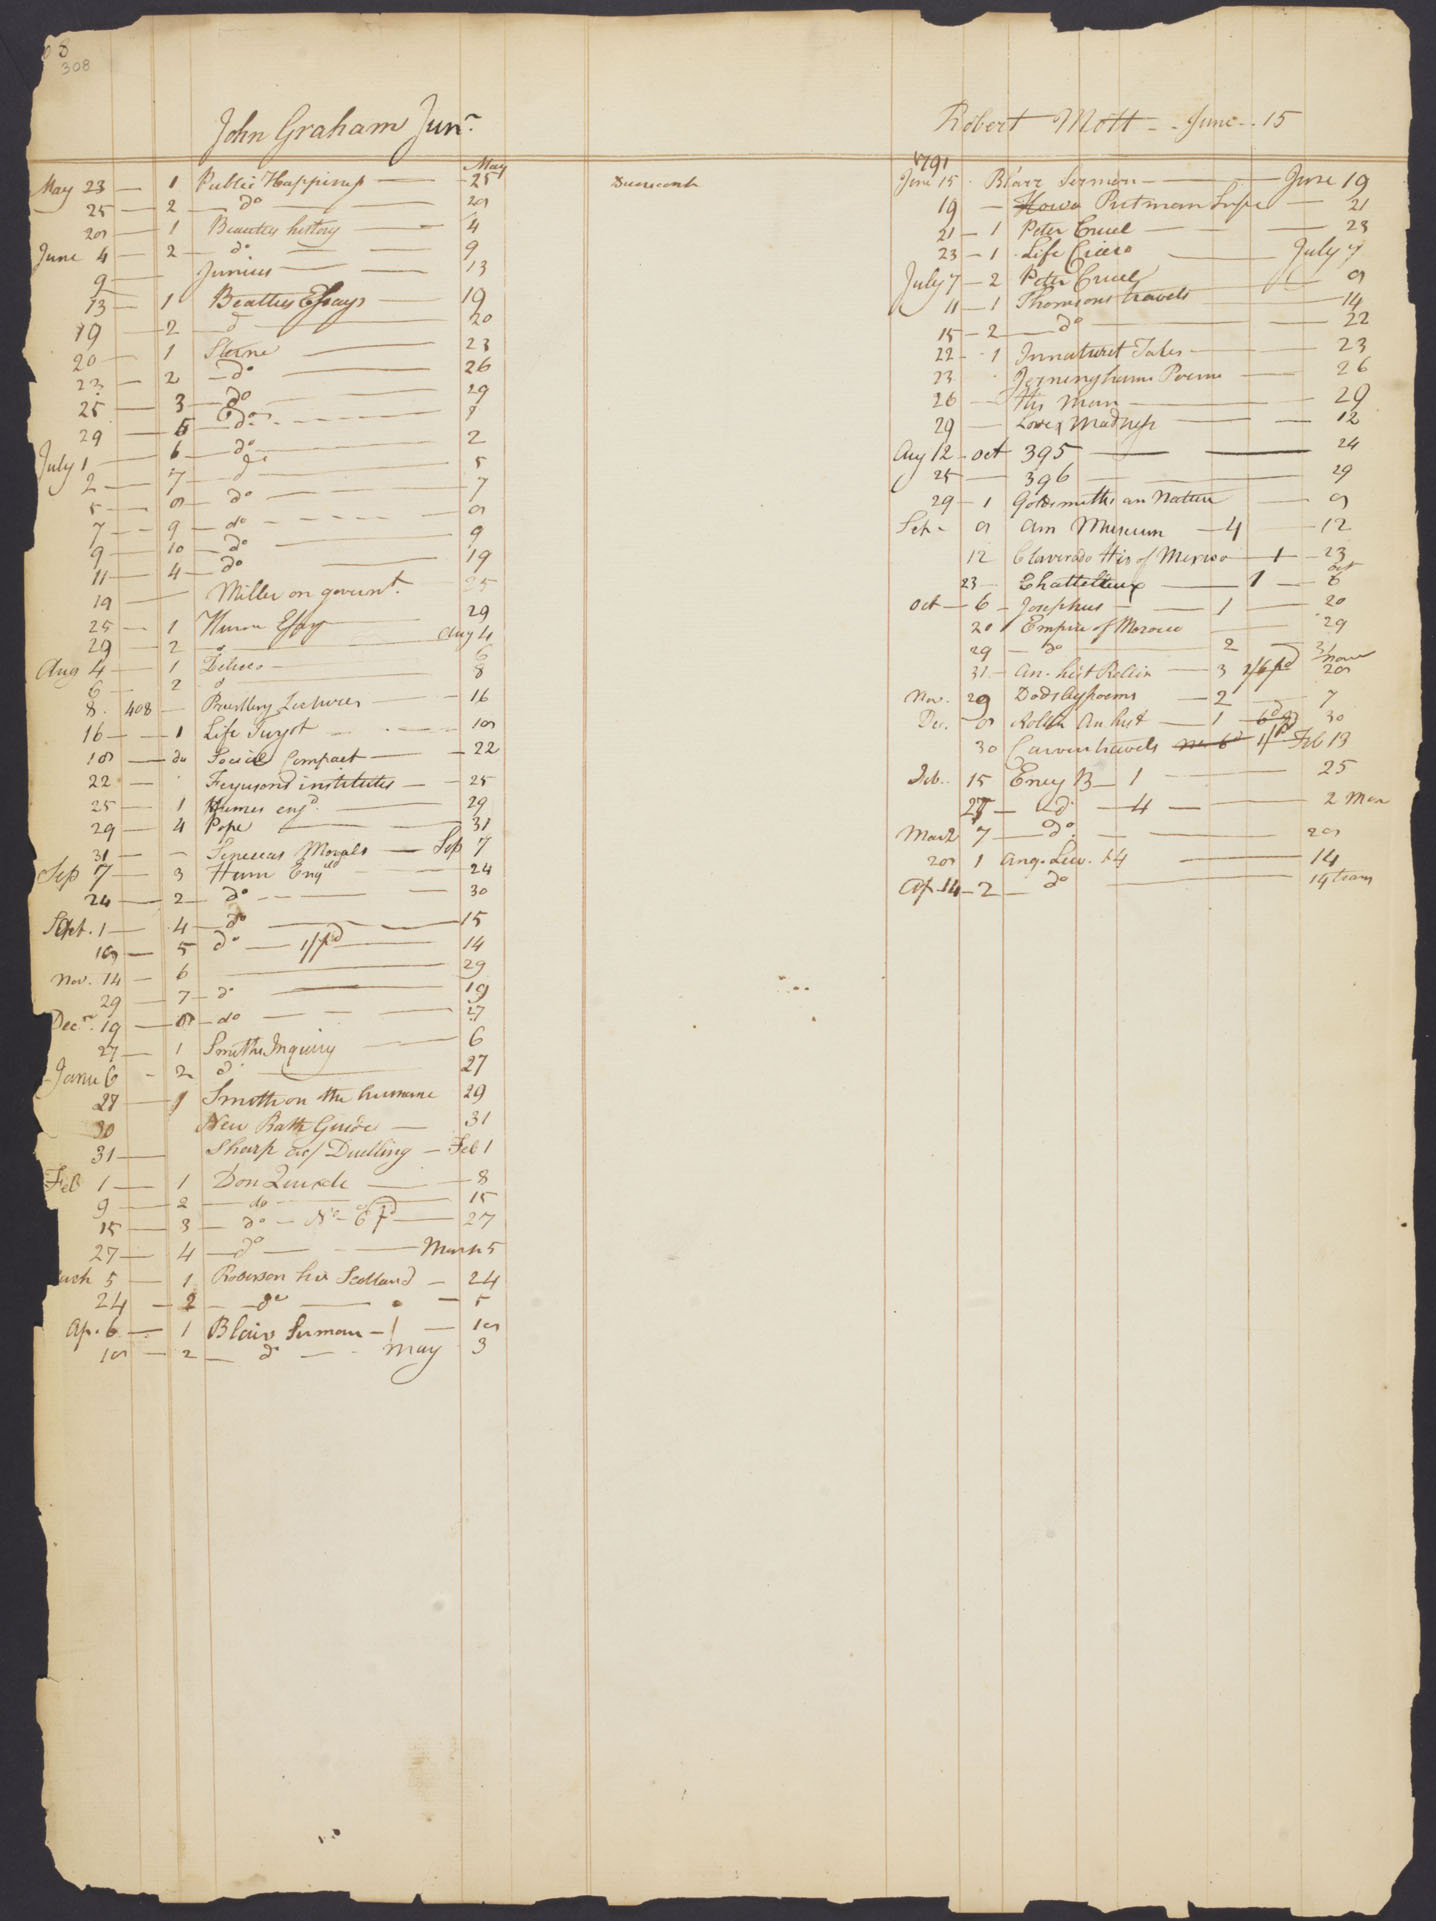 308
John Graham Junr.
May
May 23 — 1 Public Happiness — 25
25 — 2 — do — 28
28 — 1 Beauties history — 4
June 4 — 2 — do — 9
9 — Junius — 13
13 — 1 Beatties Essays — 19
19 — 2 — d — 20
20 — 1 Sterne — 23
23 — 2 — do — 26
25 — 3 — do — 29
29 — 5 — do — 1
July 1 — 6 — do — 2
2 — 7 — d — 5
5 — 8 — do — 7
7 — 9 — do — 8
9 — 10 — do — 9
11 — 4 — do — 19
19 — Miller on governt. 25
25 — 1 Hume Essay — 29
29 — 2 — d Aug 4
Aug 4 — 1 — 6
6 — 2 d — 8
8 408 — Priestley Lectures — 16
16 — 1 Life Turgot — 18
18 — do Social Compact — 22
22 — Fergusons institutes — 25
25 — 1 Humes engd. — 29
29 — 4 Pope — 31
31 — Senecas Morals — Sep 7
Sep 7 — 3 Hum Engld — 24
24 — 2 — do — 30
Oct. 1 — 4 — do — 15
18 — 5 do — 1/pd — 14
Nov. 14 — 6 — 29
29 — 7 — do — 19
Decr. 19 — 8 — do — 27
27 — 1 Smiths Inquiry — 6
Janu 6 — 2 d — 27
27 — 1 Smith on the humane 29
30 New Bath Guide — 31
31 — Sharp on Duelling — Feb 1
Feb 1 — 1 Don Quixote — 8
9 — 2 — do — 15
15 — 3 — do — No 6 pd — 27
27 — 4 — do — March 5
arch 5 — 1 Roberson his Scotland — 24
24 — 2 — do — 5
Ap. 6 — 1 Blairs Sermon — 1 — 18
18 — 2 — do — May 3
Robert Mott — June — 15
1791
June 15 Blair Sermon — June 19
19 — Howe Putmans Life — 21
21 — 1 Peter Cruel — 23
23 — 1 Life Cicero — July 7
July 7 — 2 Peter Cruel — 8
11 — 1 Thomsons travels — 14
15 — 2 — do — 22
22 — 1 Tales — 23
23 Jerninghams Poems — 26
26 — His Man — 29
29 — Love & Madness — 12
Aug 12 — oct 395 — 24
25 — 396 — 29
29 — 1 Goldsmiths an Nature — 8
Sep — 8 Am Museum — 4 — 12
12 Claverado His of Mexico — 1 — 23
oct
23 — Chattelleux — 1 — 6
Oct — 6 — Josephus — 1 — 20
20 1 Empire of Morocco — 29
29 — do — 2 — 31
Nov
31 — An. hist Rollin — 3 2/6 pd 28
Nov. 29 Dodsley poems — 2 — 7
Dec. 8 Rollin An hist — 1 — 6d pd 30
30 Carver travels 1/pd Feb 13
Feb. 15 Ency B — 1 — 25
27 — d — 4 — 2 Mar
Mar 2 7 — do — 28
28 1 Ang. Lew. 14 — 14
Ap. 14 — 2 — do — 19